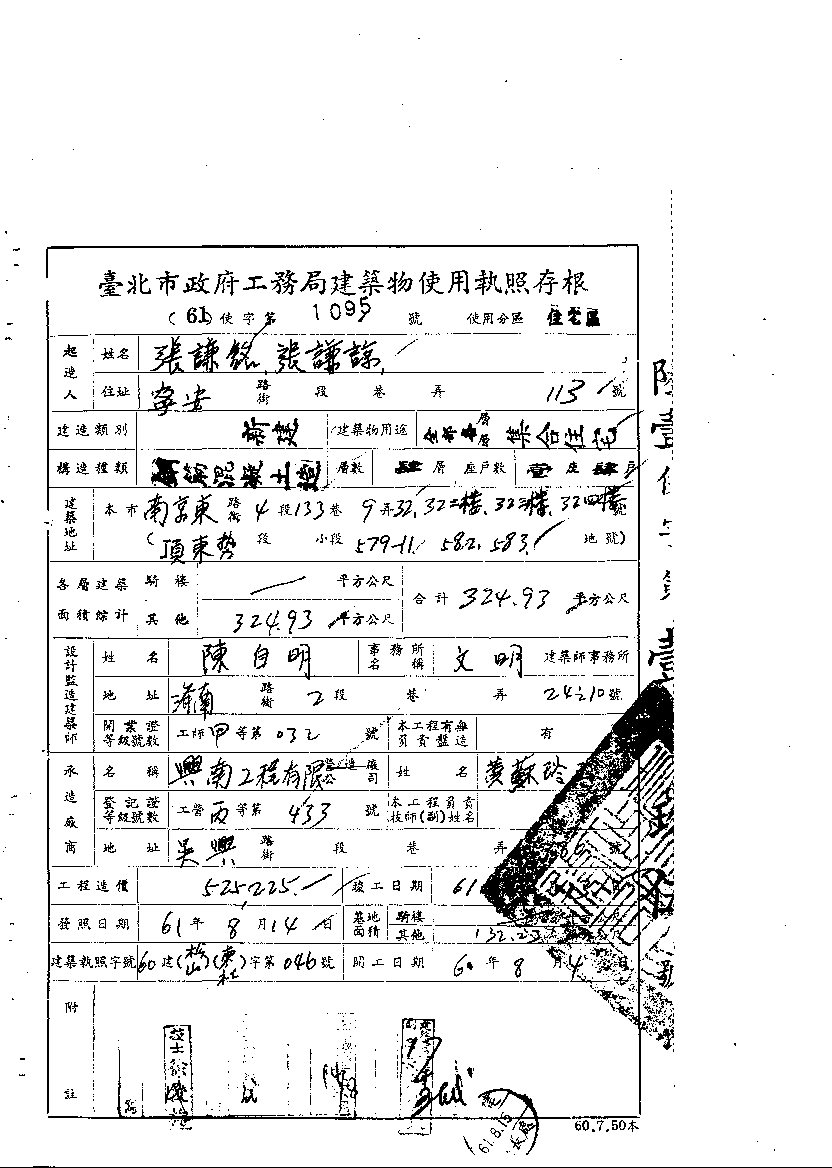 臺北市政府工務局建築物使用執照存根
(61)使字第 1095 號 使用分區 住宅區
起造人 姓名 張謙銘、張謙諒
住址 寧安 路街 段 巷 弄 113 號
建造類別 新建 建築物用途 全部各層 集合住宅
構造種類 鋼筋混凝土造 層數 肆 層 座戶數 壹 座 肆 戶
建築地址 本市 南京東 路街 4 段 133 巷 9 弄 32, 32二樓, 32三樓, 32四樓 號
(頂東勢 段 小段 579-11, 582, 583, 地號)
各層建築面積綜計 騎樓 平方公尺 合計 324.93 平方公尺
其他 324.93 平方公尺
設計監造建築師 姓名 陳自明 事務所名稱 文明 建築師事務所
地址 路街 2 段 巷 弄 號
開業證等級號數 工師 甲 等第 032 號 本工程有無負責監造 有
承造廠商 名稱 興南工程有限 公司 姓名 黃蘇玲
登記證等級號數 工營 丙 等第 433 號 本工程負責技師(副)姓名
地址 吳興 路街 段 巷 弄 號
工程造價 525,225. 竣工日期 61
發照日期 61 年 8 月 14 日 基地面積 騎樓
其他
建築執照字號 60 建(松山)(東社)字第 046 號 開工日期 60 年 8 月 4 日
附註
61.8.15
60.7.50本